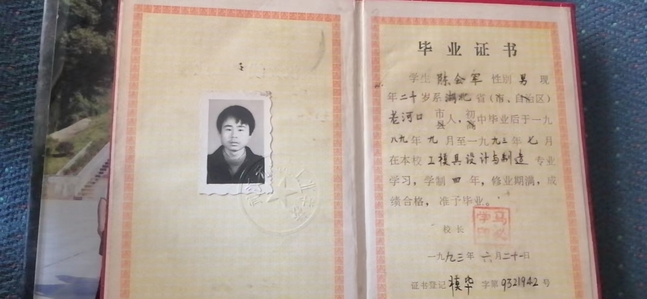 毕业证书
学生 陈会军 性别 男 现
年二十岁系湖北省(市、自治区)
老河口 市县 人,初中毕业后于一九
八九年九月至一九九三年七月
在本校 工模具设计与制造 专业
学习,学制四年,修业期满,成
绩合格,准予毕业。
校长
一九九三年六月二十一日
证书登记 字第9321942号